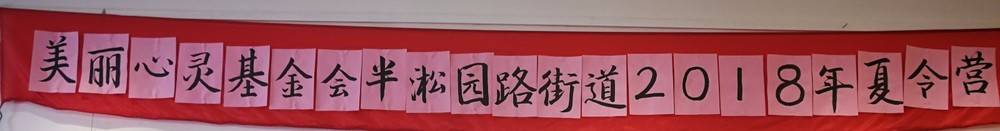 美丽心灵基金会半淞园路街道2018年夏令营